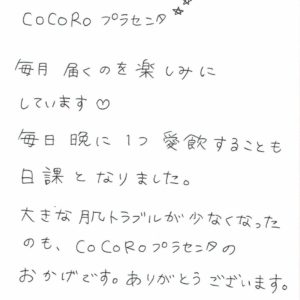 CoCoRo プラセンタ ☆☆
毎月 届くのを楽しみに
しています♡
毎日 晩に 1つ 愛飲することも
日課となりました。
大きな肌トラブルが少なくなった
のも、CoCoRoプラセンタの
おかげです。ありがとうございます。